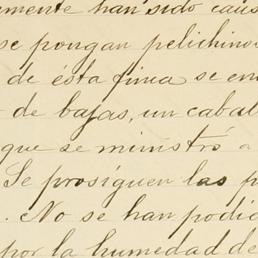 amente han sido caus
se pongan pelichino
de ésta finca se en
de bajas, un cabal
que se ministró a
Se prosiguen las p
. No se han podid
por la humedad de